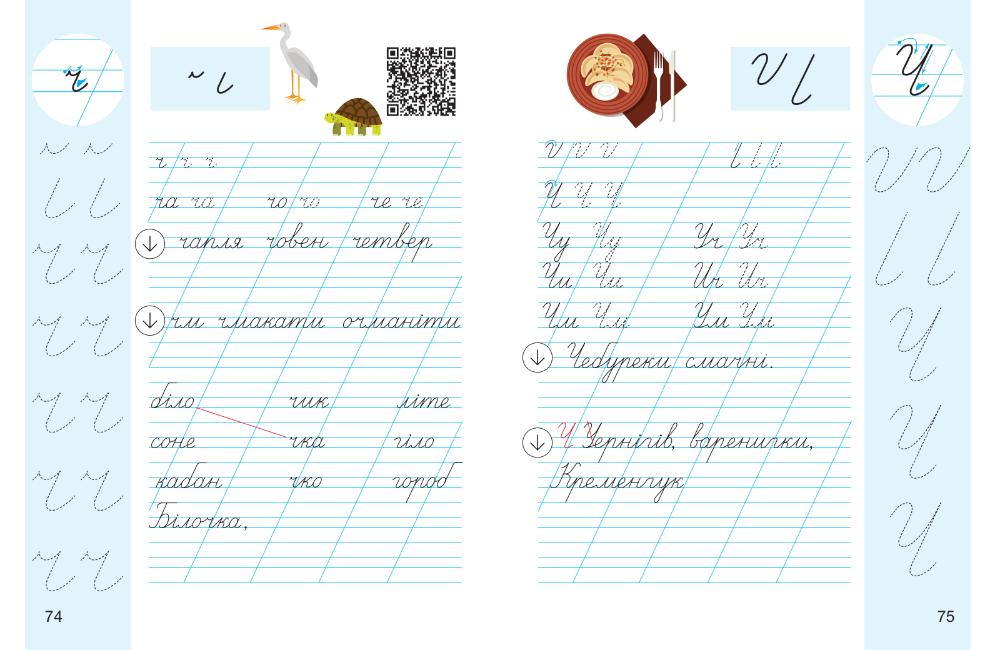 ч
ч ч ч
ча ча чо чо че че
чапля човен четвер
чи чмакати очманіти
біло чик літе
соне чка гіло
кабан чко город
Білочка,
74
Ч
Ч Ч Ч
Чу Чу Уч Уч
Чи Чи Ич Ич
Чм Чм Ум Ум
Чебуреки смачні.
Ч Чернігів, варенички,
Кременчук
75